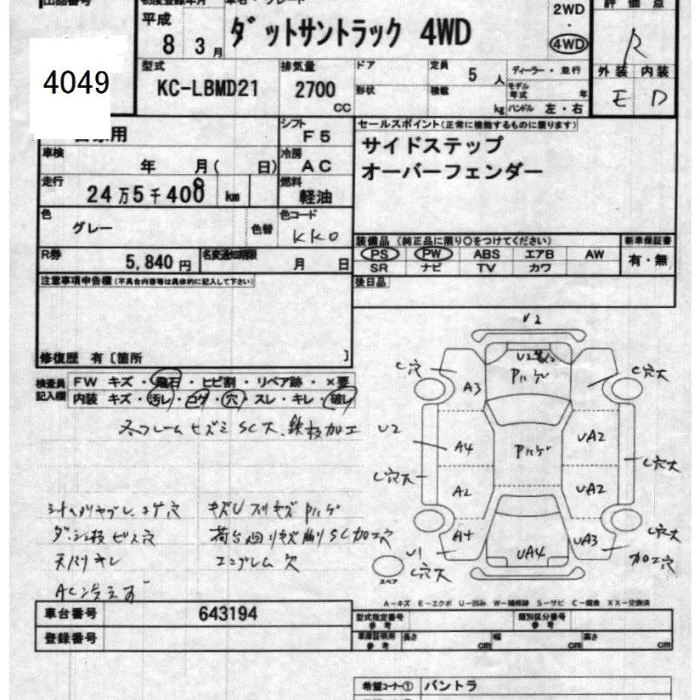 出品番号 初度登録年月 車名・グレード 評価点
平成 8 3月 ダットサントラック 4WD 2WD ・ 4WD R
4049
型式 排気量 ドア 定員 5 人 ディーラー・並行 外装 内装
KC-LBMD21 2700 CC 形状 積載 kg モデル年式 年 E D
ハンドル 左・右
自家用 シフト F5 セールスポイント(正常に機能するものに限ります)
車検 年 月( 日) 冷房 AC サイドステップ
走行 24万5千400 8 km 燃料 軽油 オーバーフェンダー
色 グレー 色替 色コード KK0
装備品 (純正品に限り○をつけてください) 新車保証書
R券 5,840円 名変通知期限 月 日 PS PW ABS エアB AW 有・無
SR ナビ TV カワ
注意事項申告欄(不具合内容等は具体的に記入して下さい) 後日品
修復歴 有〔箇所 〕
検査員記入欄 FW キズ・飛石・ヒビ割・リペア跡・×要
内装 キズ・汚レ・コゲ・穴・スレ・キレ・破レ
フレーム ヒズミ SC大、鉄板加工
キズU スリキズ Pハゲ
ダッシュ板 ビス穴
天バリ キレ エンブレム欠
AC冷えず
U2
C穴 Pハゲ C穴大
A3
U2 A4 Pハゲ UA2
C穴大 A2 UA2 C穴大
A4 UA4 UA3 C穴大
U1 加工穴
スペア C穴大
A－キズ E－エクボ U－凹み W－補修跡 S－サビ C－腐食 XX－交換済
車台番号 643194 型式指定番号 参考 類別区分番号 参考
登録番号 車庫証明用 参考 長さ cm 幅 cm 高さ cm
希望コーナー① バントラ